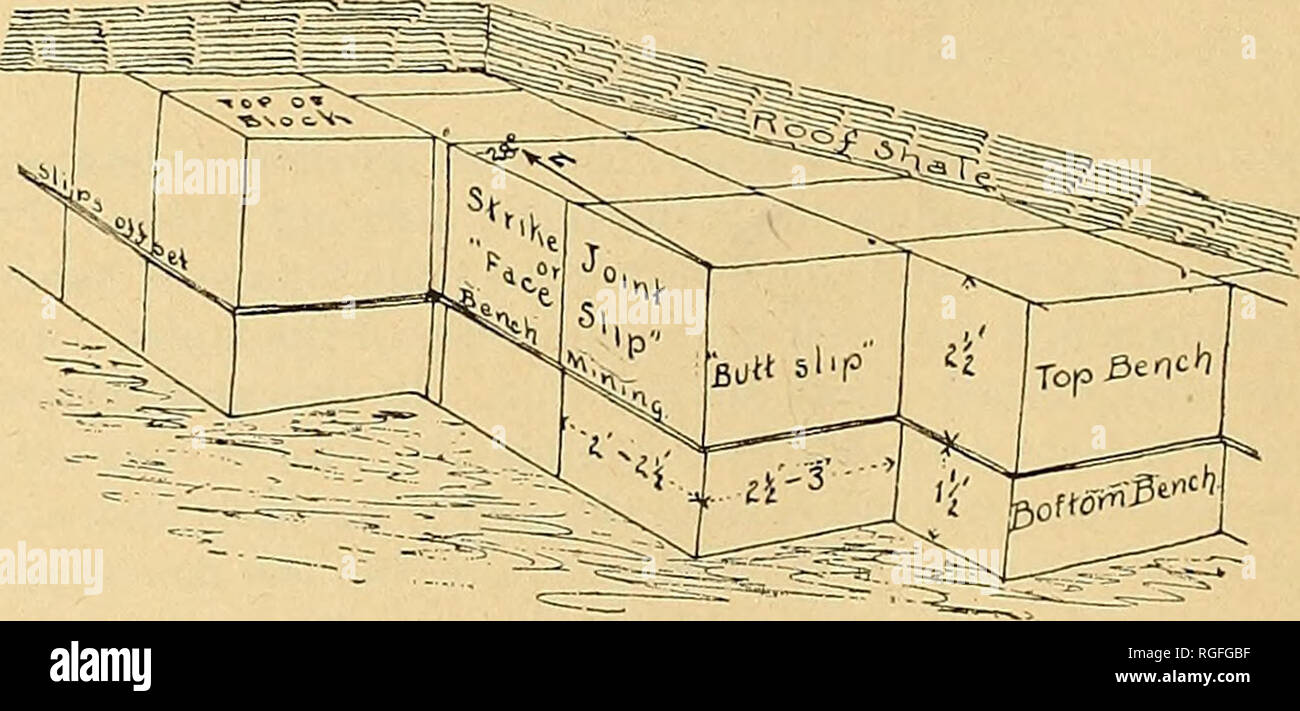 Roof Shale
Top of
Block
Slips offset
N
Strike
or
"Face
Bench
Joint
Slip"
Mining
"Butt slip"
2½'
Top Bench
2'-2½'
2½'-3'
1½'
Bottom Bench
a
alamy
Image ID: RGFGBF
www.alamy.com